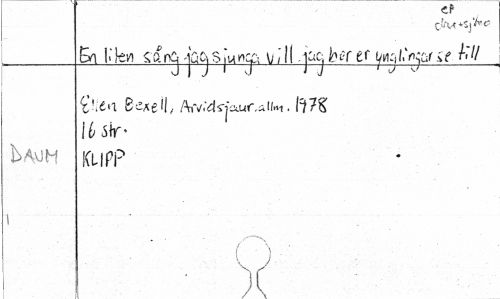 EP
En liten sång jag sjunga vill jag ber er ynglingar se till
Ellen Bexell, Arvidsjaur. allm. 1978
16 str.
DAUM KLIPP